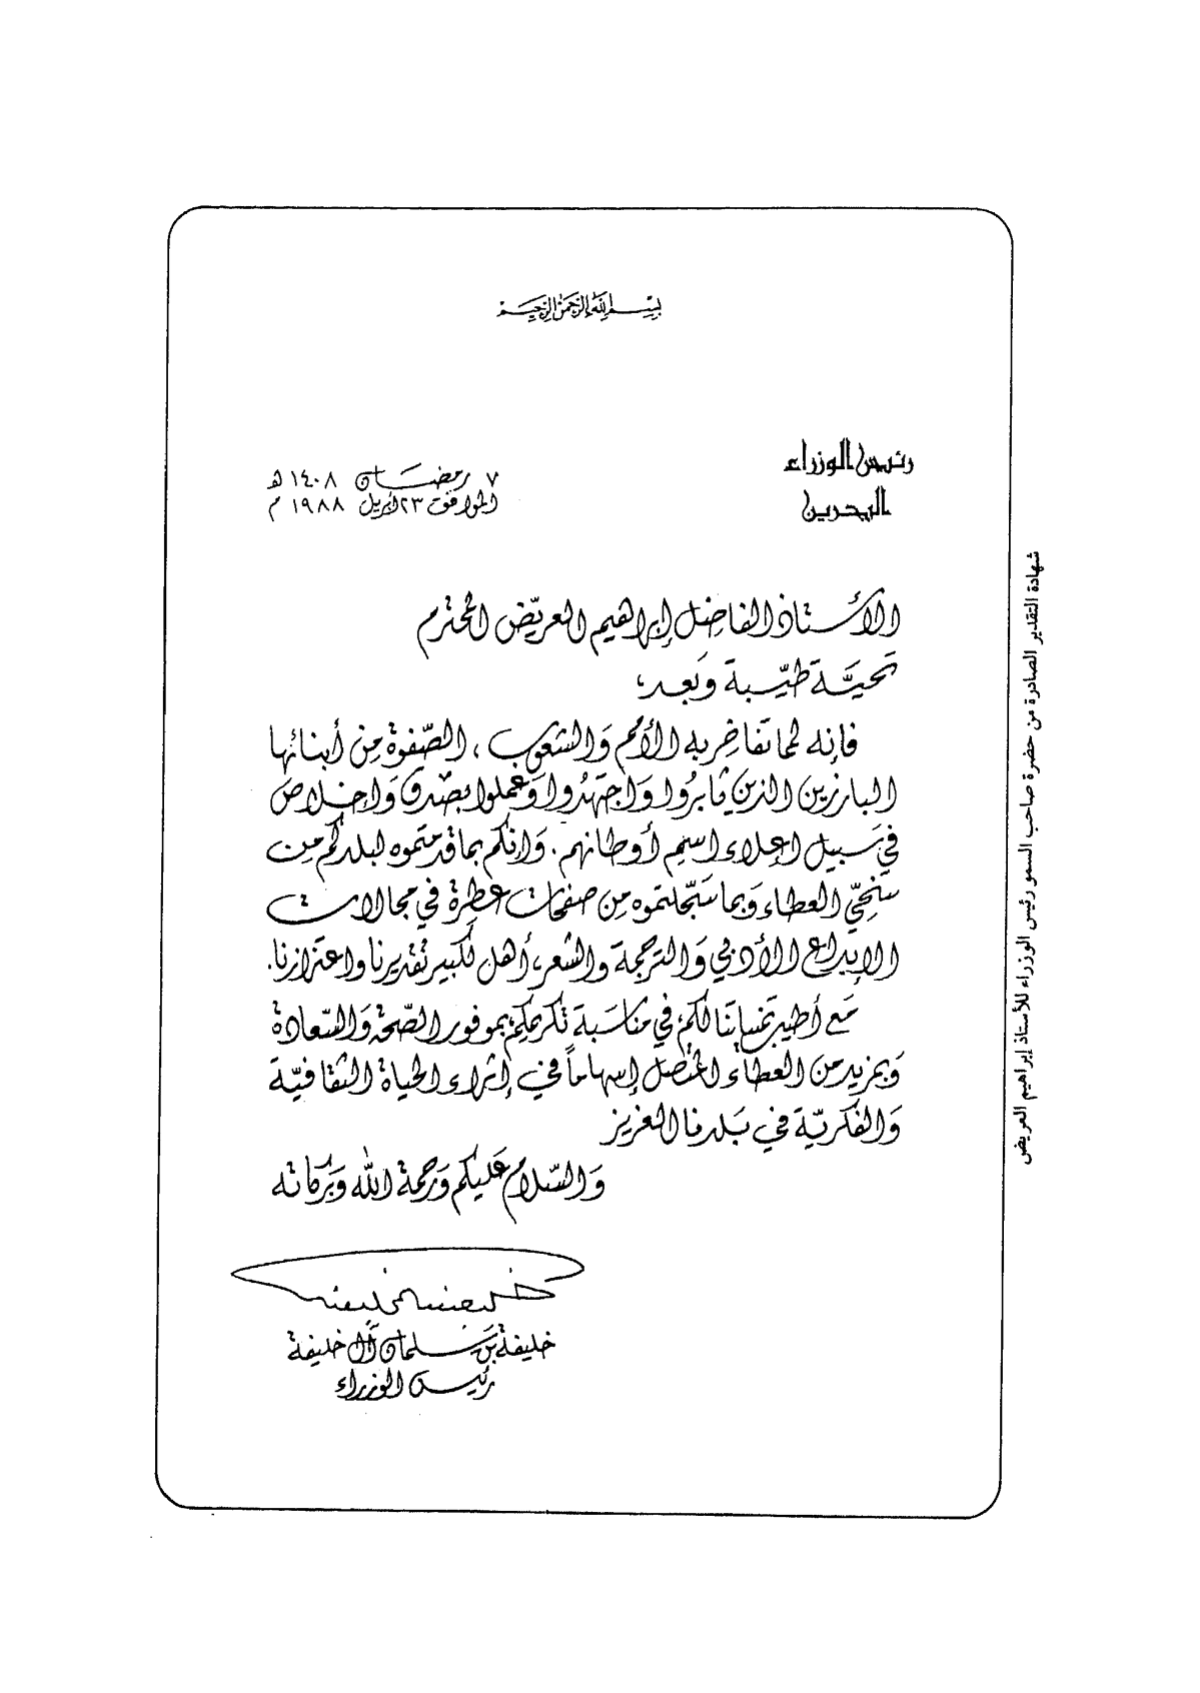 بسم الله الرحمن الرحيم
رئيس الوزراء
البحرين
٧ رمضان ١٤٠٨ هـ
الموافق ٢٣ أبريل ١٩٨٨ م
الأستاذ الفاضل إبراهيم العريّض المحترم
تحيّة طيّبة وبعد،
فإنه لمما تفاخر به الأمم والشعوب، الصّفوة من أبنائها
البارزين الذين ثابروا واجتهدوا وعملوا بصدق وإخلاص
في سبيل إعلاء اسم أوطانهم. وإنكم بما قدمتموه لبلدكم من
سخيّ العطاء وبما سجّلتموه من صفحات عطرة في مجالات
الإبداع الأدبي والترجمة والشعر، أهل لكبير تقديرنا واعتزازنا.
مع أطيب تمنياتنا لكم، في مناسبة تكريمكم، بموفور الصّحة والسّعادة
وبمزيد من العطاء المتصل إسهاماً في إثراء الحياة الثقافيّة
والفكريّة في بلدنا العزيز
والسّلام عليكم ورحمة الله وبركاته
خليفة بن سلمان آل خليفة
رئيس الوزراء
شهادة التقدير الصادرة من حضرة صاحب السمو رئيس الوزراء للأستاذ إبراهيم العريض